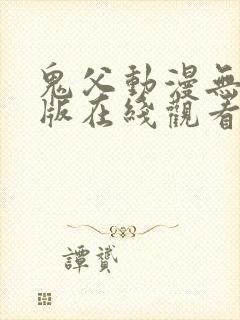 鬼父動漫無
版在綫觀看
譚贇